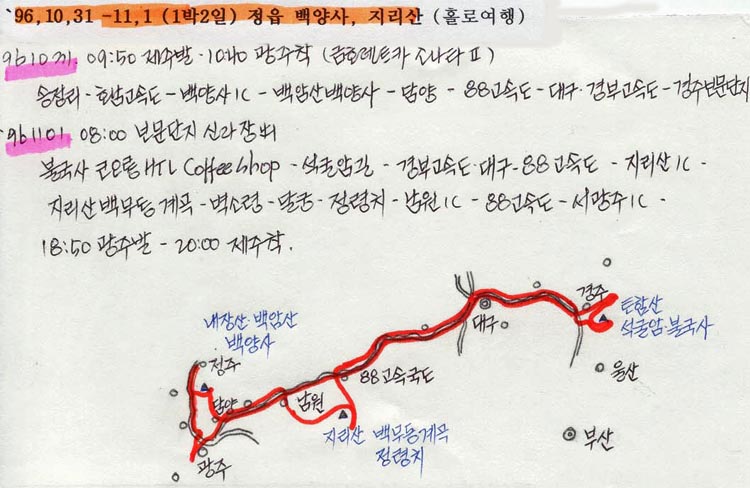 `96,10,31 -11,1 (1박2일) 정읍 백양사, 지리산 (홀로여행)
961031. 09:50 제주발 - 10:40 광주착 (금호렌트카 소나타Ⅱ)
송정리 - 호남고속도 - 백양사IC - 백암산백양사 - 담양 - 88고속도 - 대구·경부고속도 - 경주보문단지
961101 08:00 보문단지 신라장
불국사 코오롱 HTL Coffee Shop - 석굴암길 - 경부고속도·대구·88고속도 - 지리산IC -
지리산백무동계곡 - 벽소령 - 달궁 - 정령치 - 남원IC - 88고속도 - 서광주IC -
18:50 광주발 - 20:00 제주착.
내장산·백암산
백양사
정주
담양
광주
남원
88고속국도
지리산 백무동계곡
정령치
대구
경주
토함산
석굴암·불국사
울산
부산